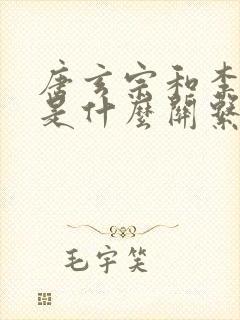 唐玄宗和李
是什麼關繫
毛宇笑